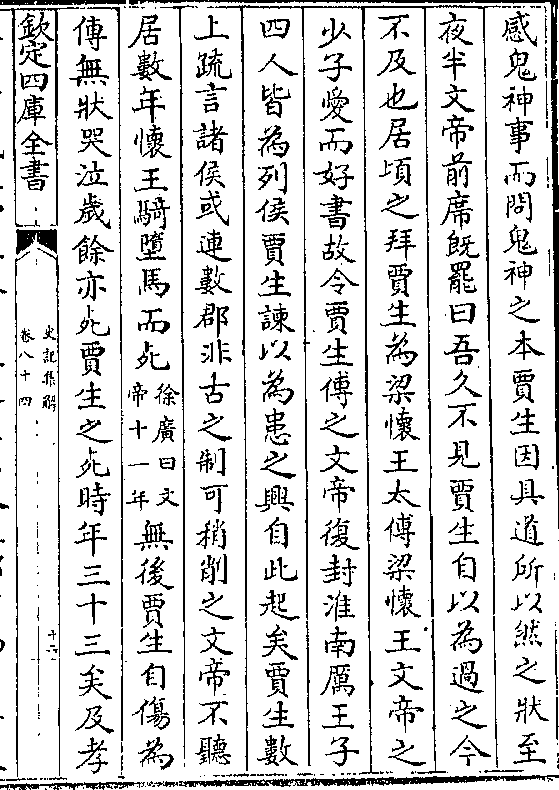 感鬼神事而問鬼神之本賈生因具道所以然之狀至
夜半文帝前席既罷曰吾久不見賈生自以為過之今
不及也居頃之拜賈生為梁懷王太傅梁懷王文帝之
少子愛而好書故令賈生傅之文帝復封淮南厲王子
四人皆為列侯賈生諫以為患之興自此起矣賈生數
上疏言諸侯或連數郡非古之制可稍削之文帝不聽
居數年懷王騎墮馬而死徐廣曰文帝十一年無後賈生自傷為
傅無狀哭泣歲餘亦死賈生之死時年三十三矣及孝
欽定四庫全書
史記集解
卷八十四